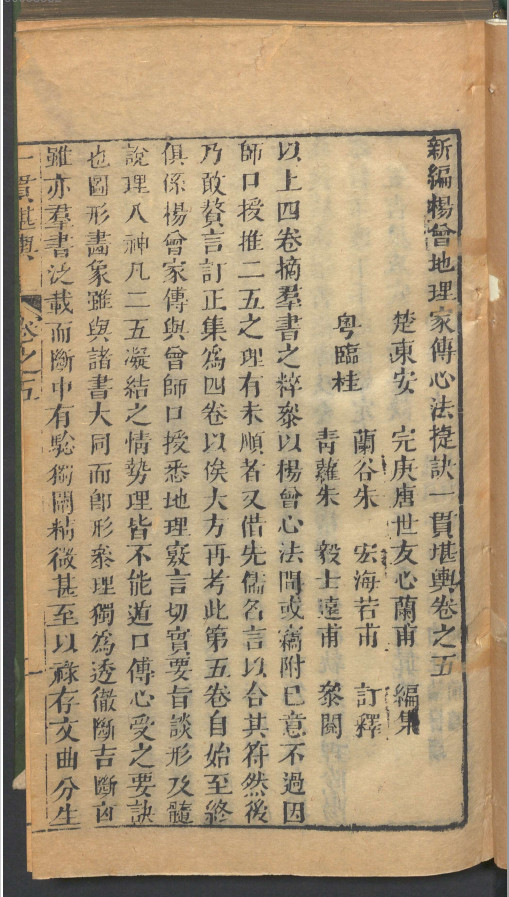 新編楊曾地理家傳心法捷訣一貫堪輿卷之五
楚東安 完庚唐世友心蘭甫 編集
粤臨桂
蘭谷朱 宏海若甫 訂釋
青蘿朱 毅士遠甫 叅閱
以上四卷摘羣書之粹叅以楊曾心法間或竊附已意不過因
師口授推二五之理有未順者又借先儒名言以合其符然後
乃敢贅言訂正集爲四卷以俟大方再考此第五卷自始至終
俱係楊曾家傳與曾師口授悉地理竅言切實要旨談形及髓
說理入神凡二五凝結之情勢理皆不能逌口傳心受之要訣
也圖形畵象雖與諸書大同而卽形叅理獨爲透徹斷吉斷凶
雖亦羣書泛載而斷中有騐獨闢精微甚至以祿存文曲分生
一貫堪輿 卷之五 一